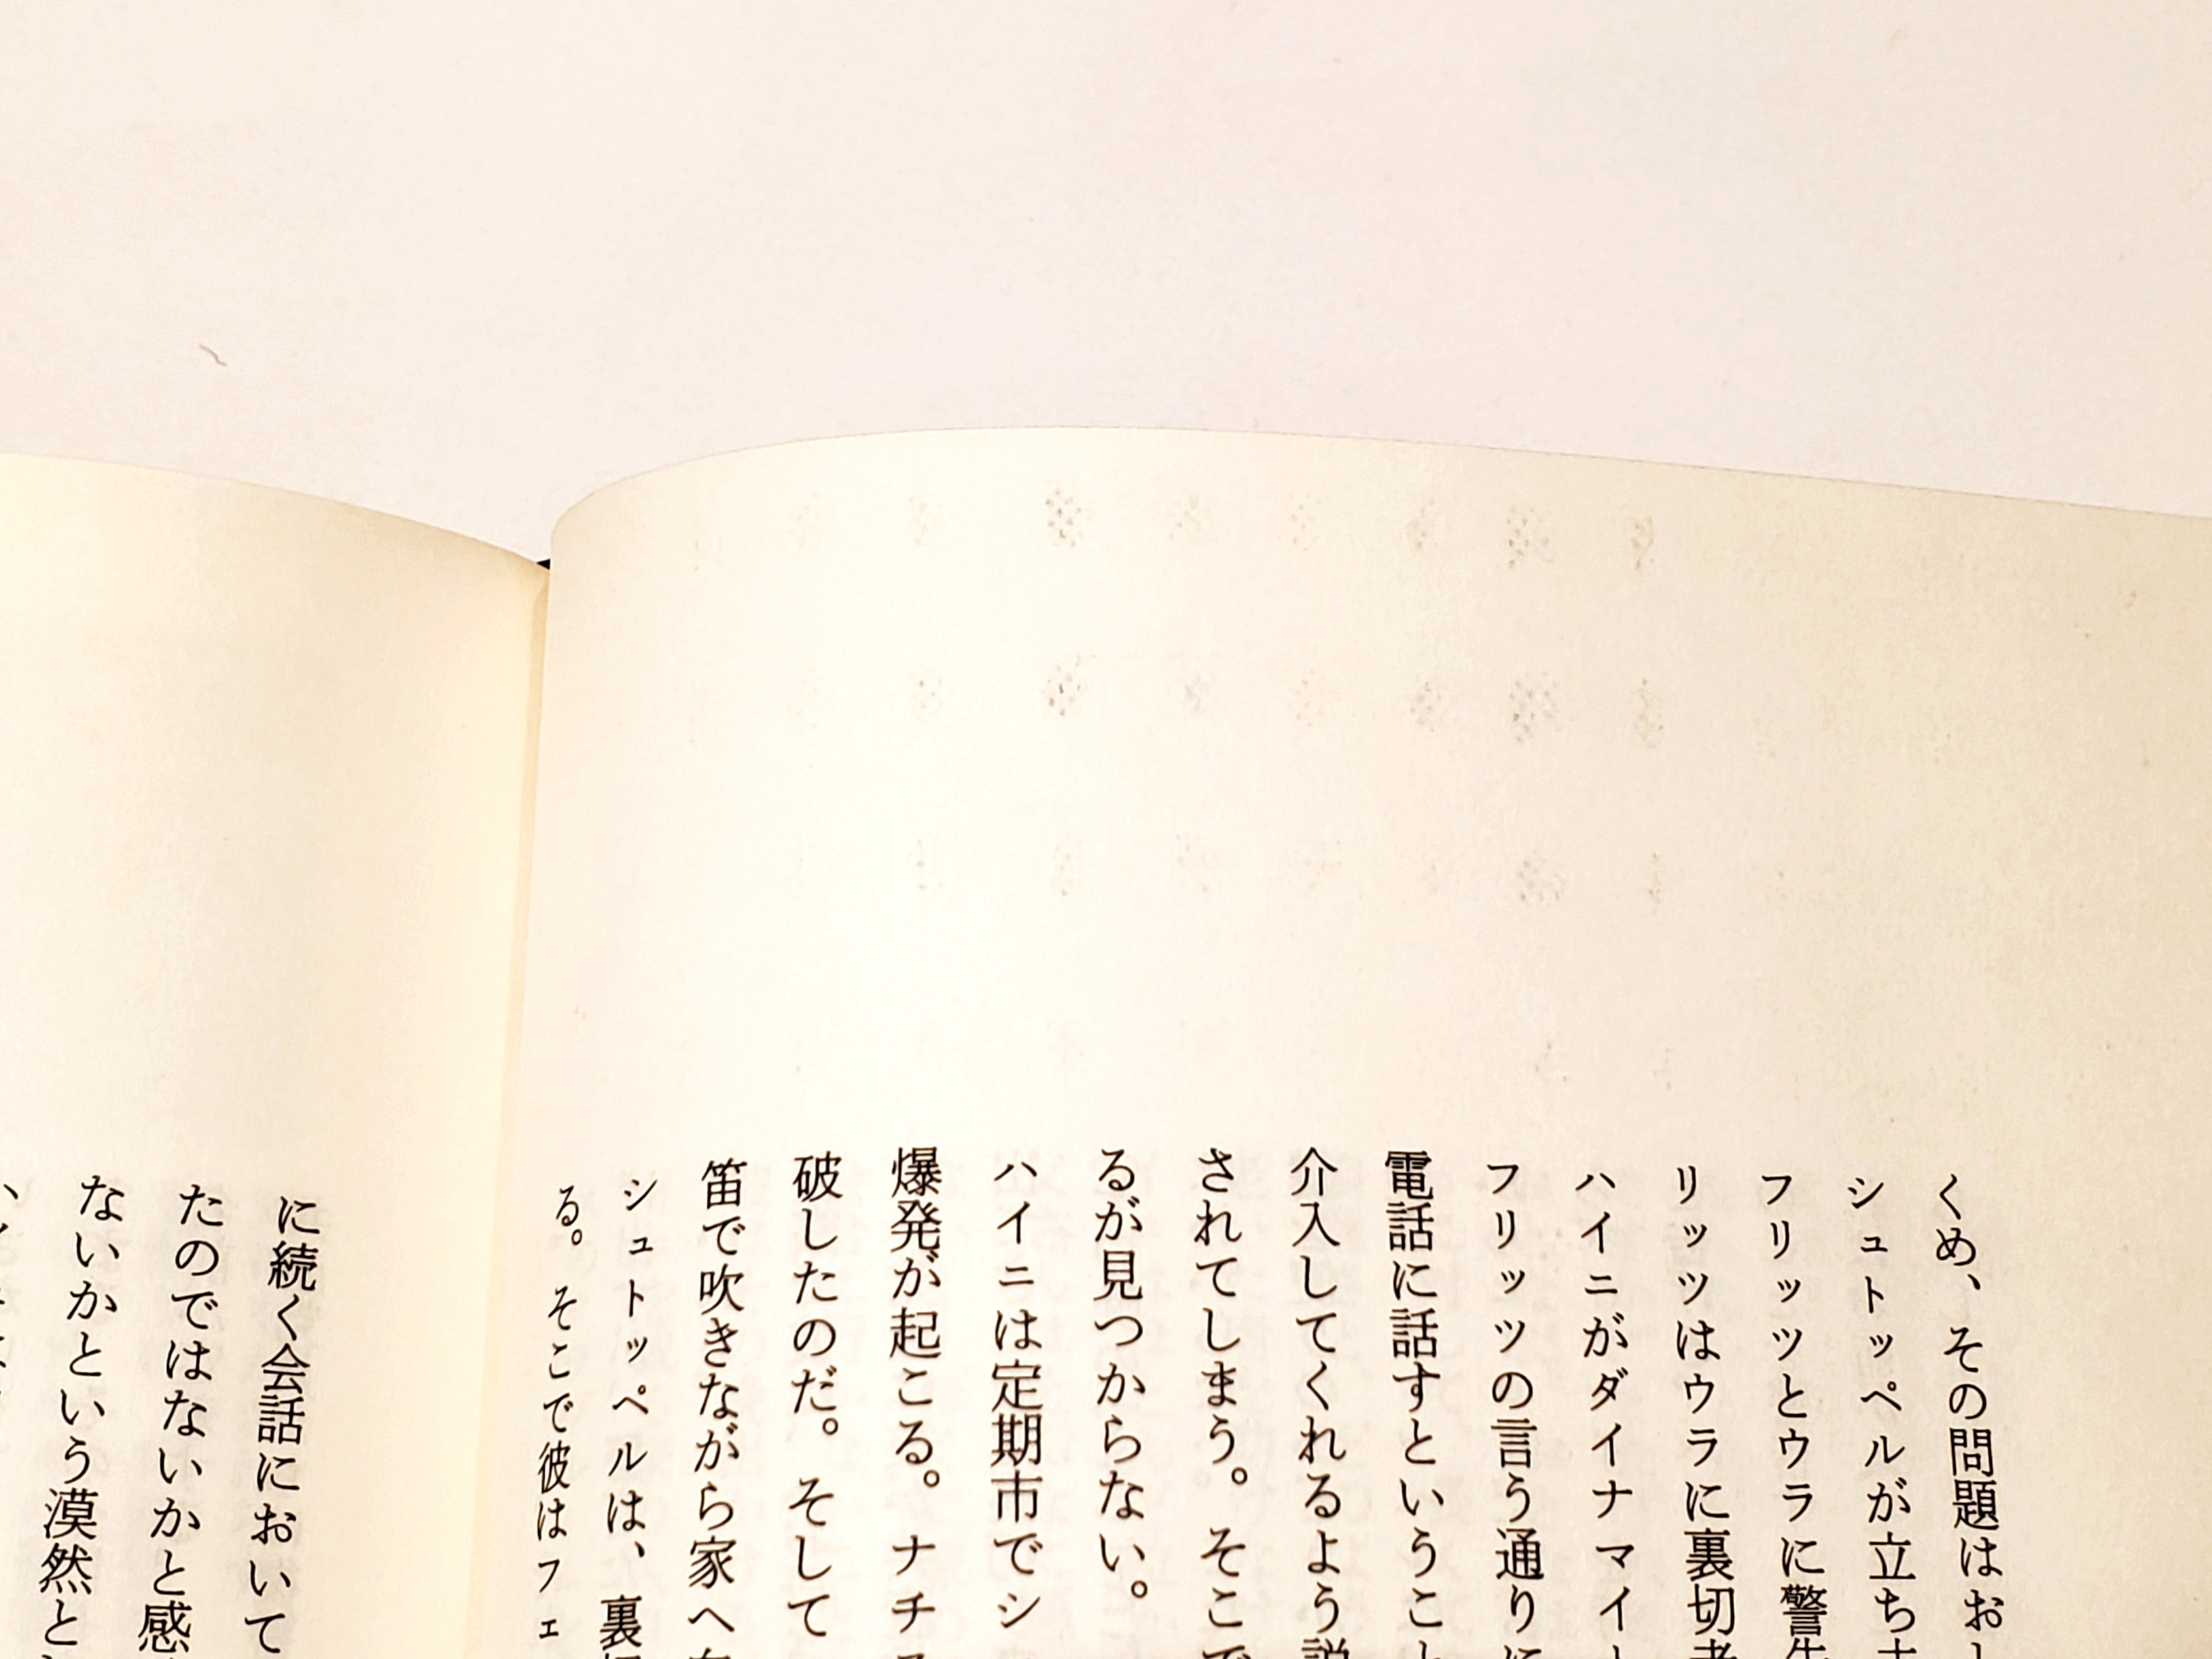 くめ、その問題はお
シュトッペルが立ち
フリッツとウラに警
リッツはウラに裏切者
ハイニがダイナマイ
フリッツの言う通りに
電話に話すということ
介入してくれるよう説
されてしまう。そこで
るが見つからない。
ハイニは定期市でシ
爆発が起こる。ナチ
破したのだ。そして
笛で吹きながら家へ
シュトッペルは、裏切
る。そこで彼はフェ
に続く会話において
たのではないかと感
ないかという漠然と